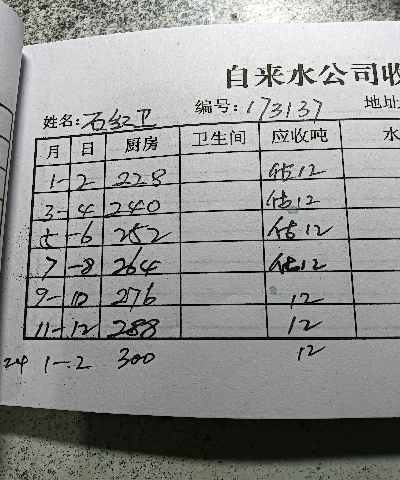 自来水公司收
姓名: 石红卫 编号: 173137 地址
月 日 厨房 卫生间 应收吨 水
1-2 228 估12
3-4 240 估12
5-6 252 估12
7-8 264 估12
9-10 276 12
11-12 288 12
24 1-2 300 12